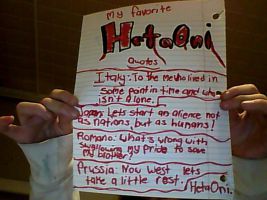 My favorite
HetaOni
Quotes
Italy: To the me who lived in
some point in time and who
isn't alone.
Japan: Lets start an alience not
as nations, but as humans!
Romano: What's wrong with
swallowing my pride to save
my brother?
Prussia: Now West lets
take a little rest.
HetaOni.